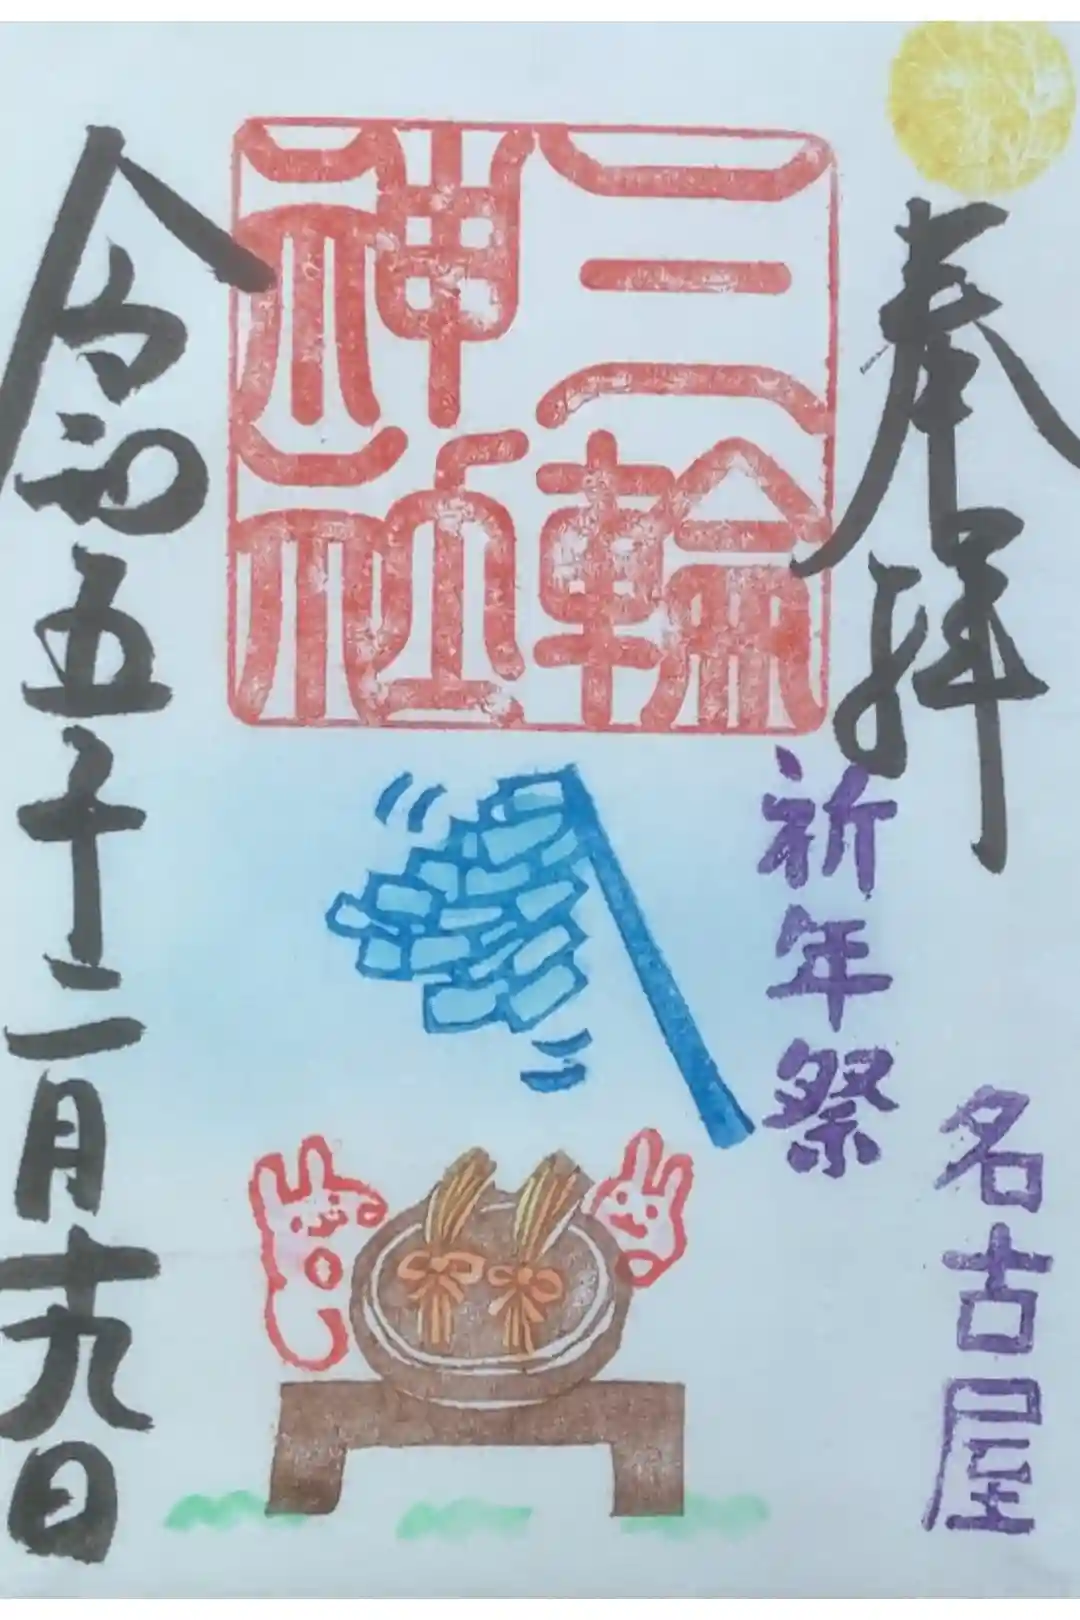 奉拝
名古屋
祈年祭
三輪
神社
令和五年二月十九日